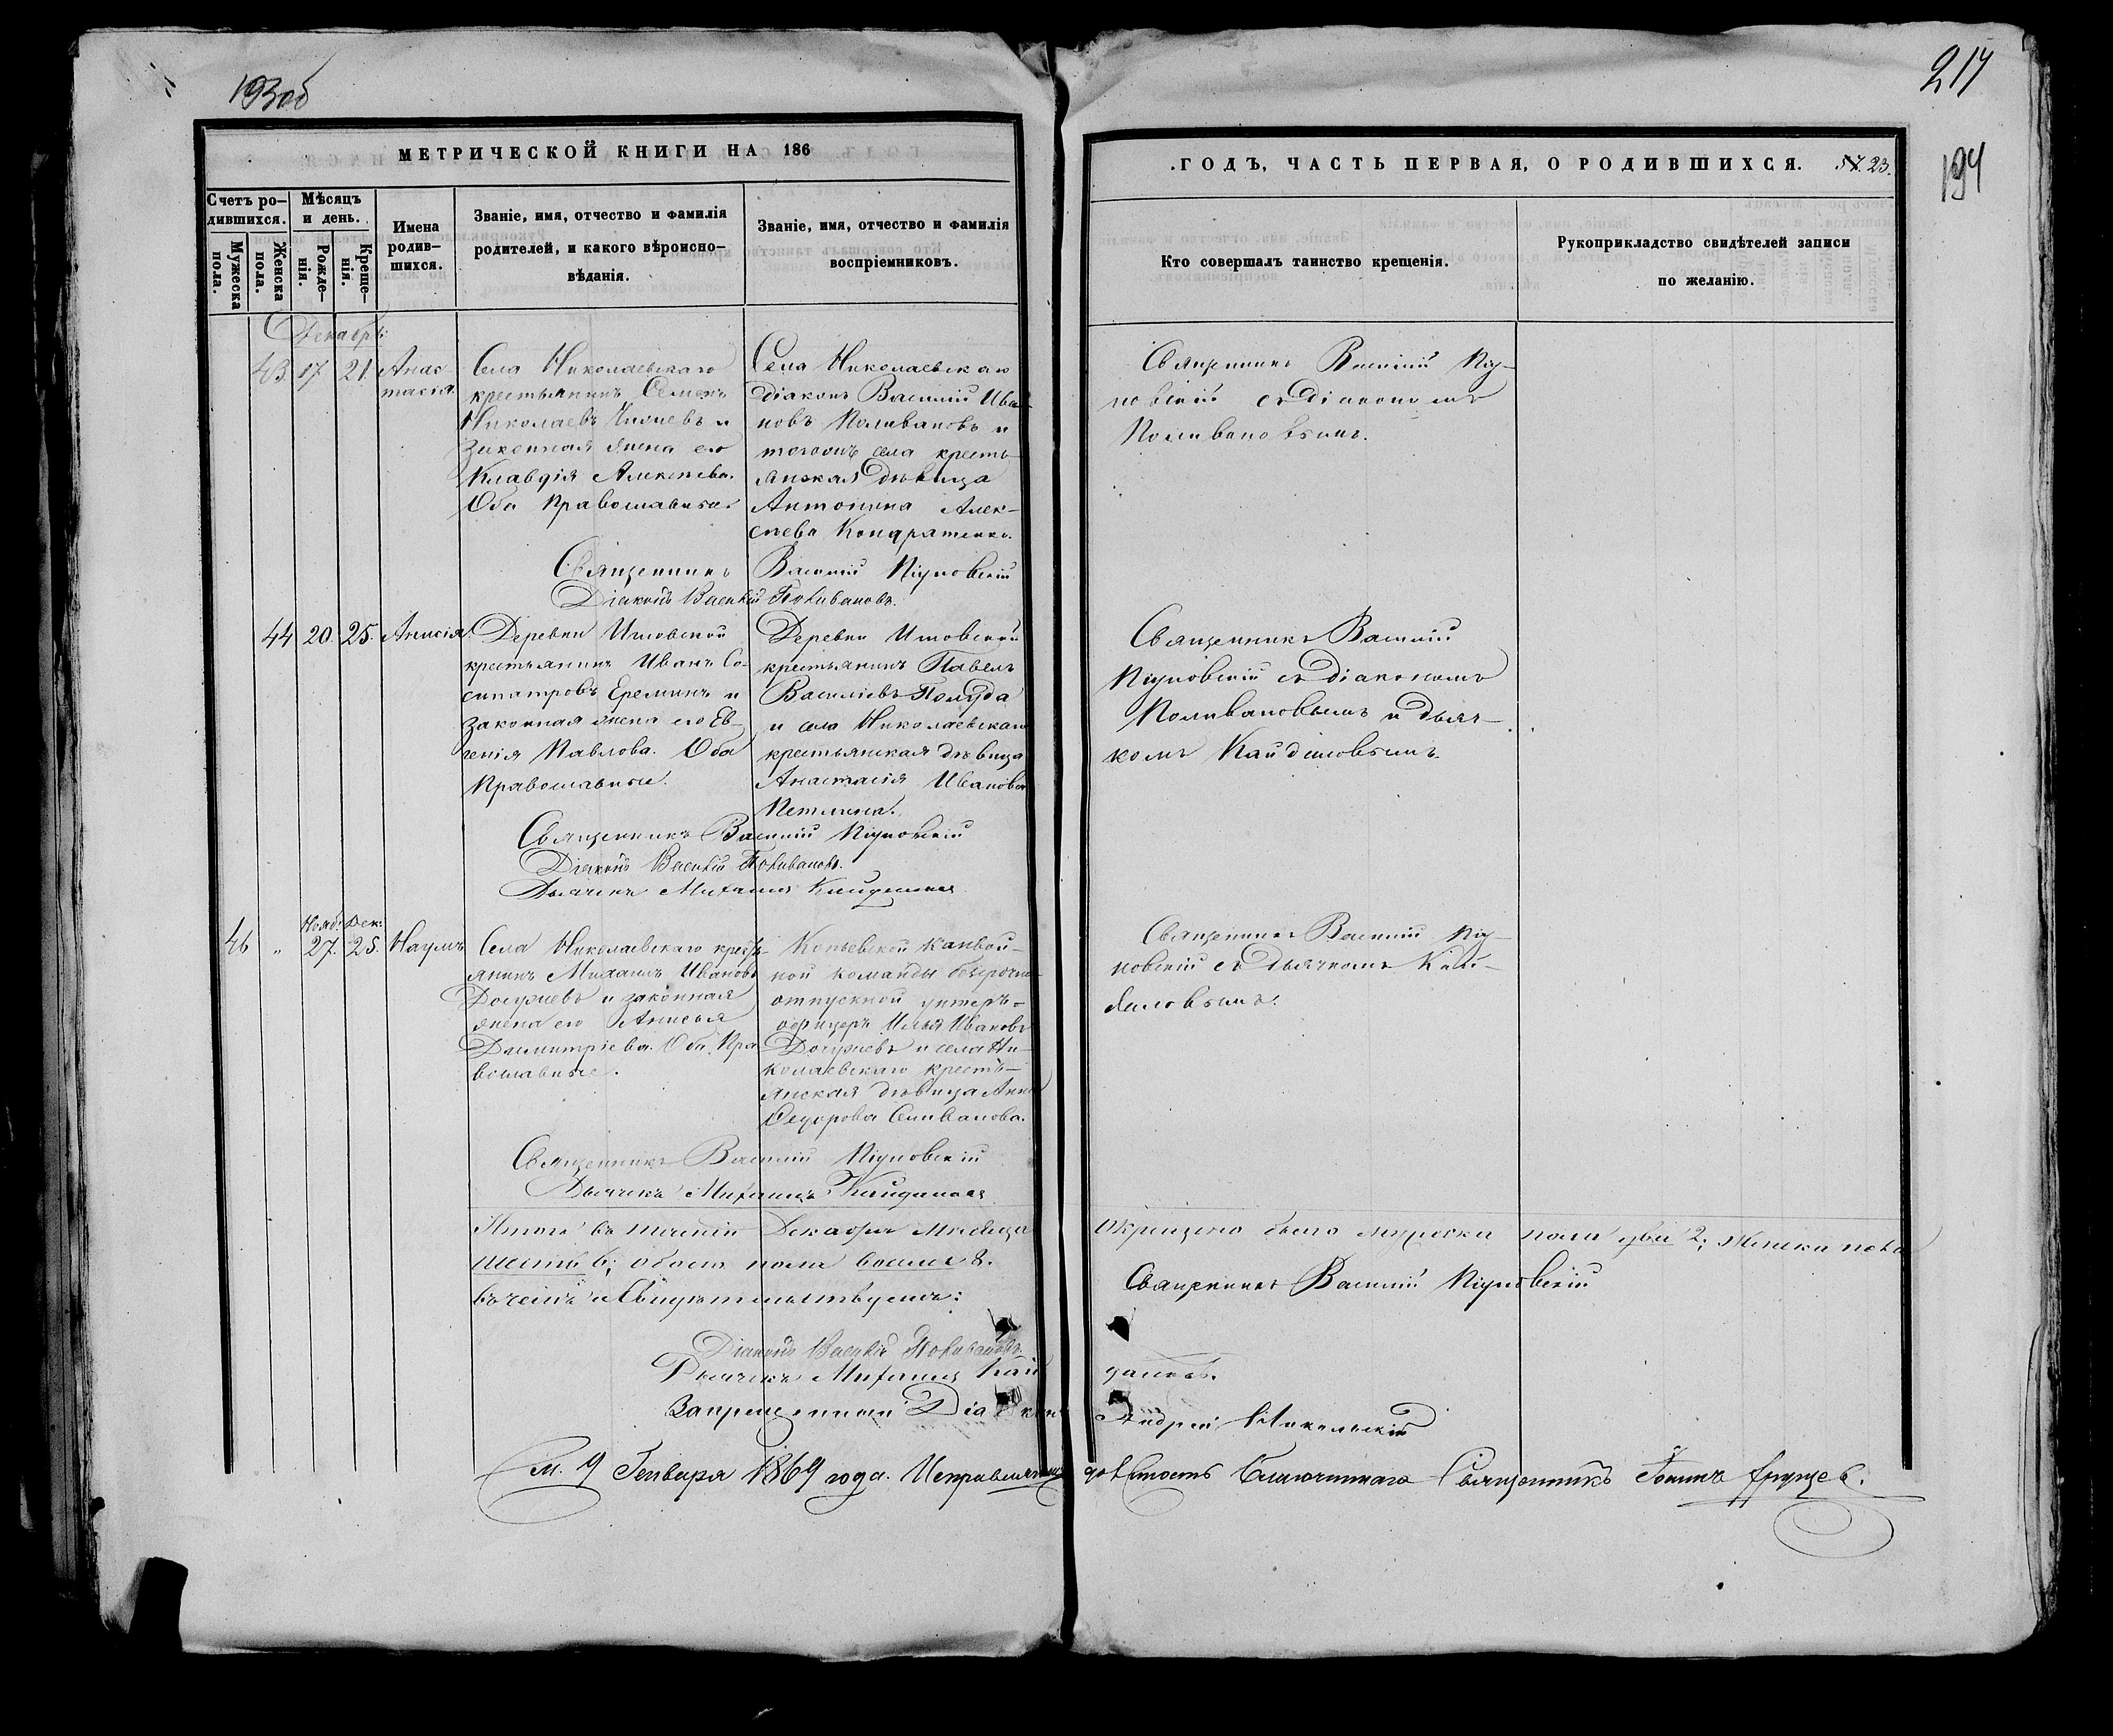 193об
МЕТРИЧЕСКОЙ КНИГИ НА 186
Счетъ ро-
дившихся.
Мужеска пола.
Женска пола.
Мѣсяцъ
и день.
Рожде-
нія.
Креще-
нія.
Имена
родив-
шихся.
Званіе, имя, отчество и фамилія
родителей, и какого вѣроиспо-
вѣданія.
Званіе, имя, отчество и фамилія
воспріемниковъ.
Декабрь
43. 17. 21. Анас-
тасія.
Села Николаевскаго
крестьянинъ Семенъ
Николаевъ и
законная жена его
Клавдія Алексѣева.
Оба Православные
Села Николаевскаго
діаконъ Василій Ива-
новъ Поливановъ и
тогожъ села кресть-
янская дѣвица
Антонина Алек-
сѣева Кондратенко.
Священникъ Василій
Діаконъ Василій Поливановъ.
44 20. 25. Анисія.
Деревни
крестьянинъ Иванъ Со-
сипатровъ Ереминъ и
законная жена его Ев-
генія Павлова. Оба
Православные.
Деревни
крестьянинъ Павелъ
Василіевъ
и села Николаевскаго
крестьянская дѣвица
Анастасія Иванова
Петлина.
Священникъ Василій
Діаконъ Василій Поливановъ.
Дьячекъ Михаилъ
Нояб. Дек:
46 " 27. 25. Наумъ
Села Николаевскаго кресть-
янинъ Михаилъ Ивановъ
и законная
жена его Анисья
Димитріева. Оба Пра-
вославные.
ной команды безсрочно-
отпускной унтеръ-
офицеръ Илья Ивановъ
и села Ни-
колаевскаго кресть-
янская дѣвица Анна
Ѳедорова Селиванова.
Священникъ Василій
Дьячекъ Михаилъ
Итого въ теченіи Декабря мѣсяца
шесть 6; обоего пола восемь 8.
въ чемъ и свидѣтельствуемъ:
Діаконъ Василій Поливановъ
Дьячекъ Михаилъ Кай
Запрещенный Діаконъ
9 Генваря 1869 года. Исправляющій
217
194
.ГОДЪ, ЧАСТЬ ПЕРВАЯ, О РОДИВШИХСЯ. 23.
Кто совершалъ таинство крещенія.
Рукоприкладство свидѣтелей записи
по желанію.
Священникъ Василій
съ діакономъ
Поливановымъ.
Священникъ Василій
съ діакономъ
Поливановымъ и дьяч-
комъ
Священникъ Василій
съ дьячкомъ Кай-
даловымъ.
Окрещено было мужеска пола два 2; женска пола
Священникъ Василій
даловъ.
Андрей Никольскій
должность Благочиннаго Священникъ